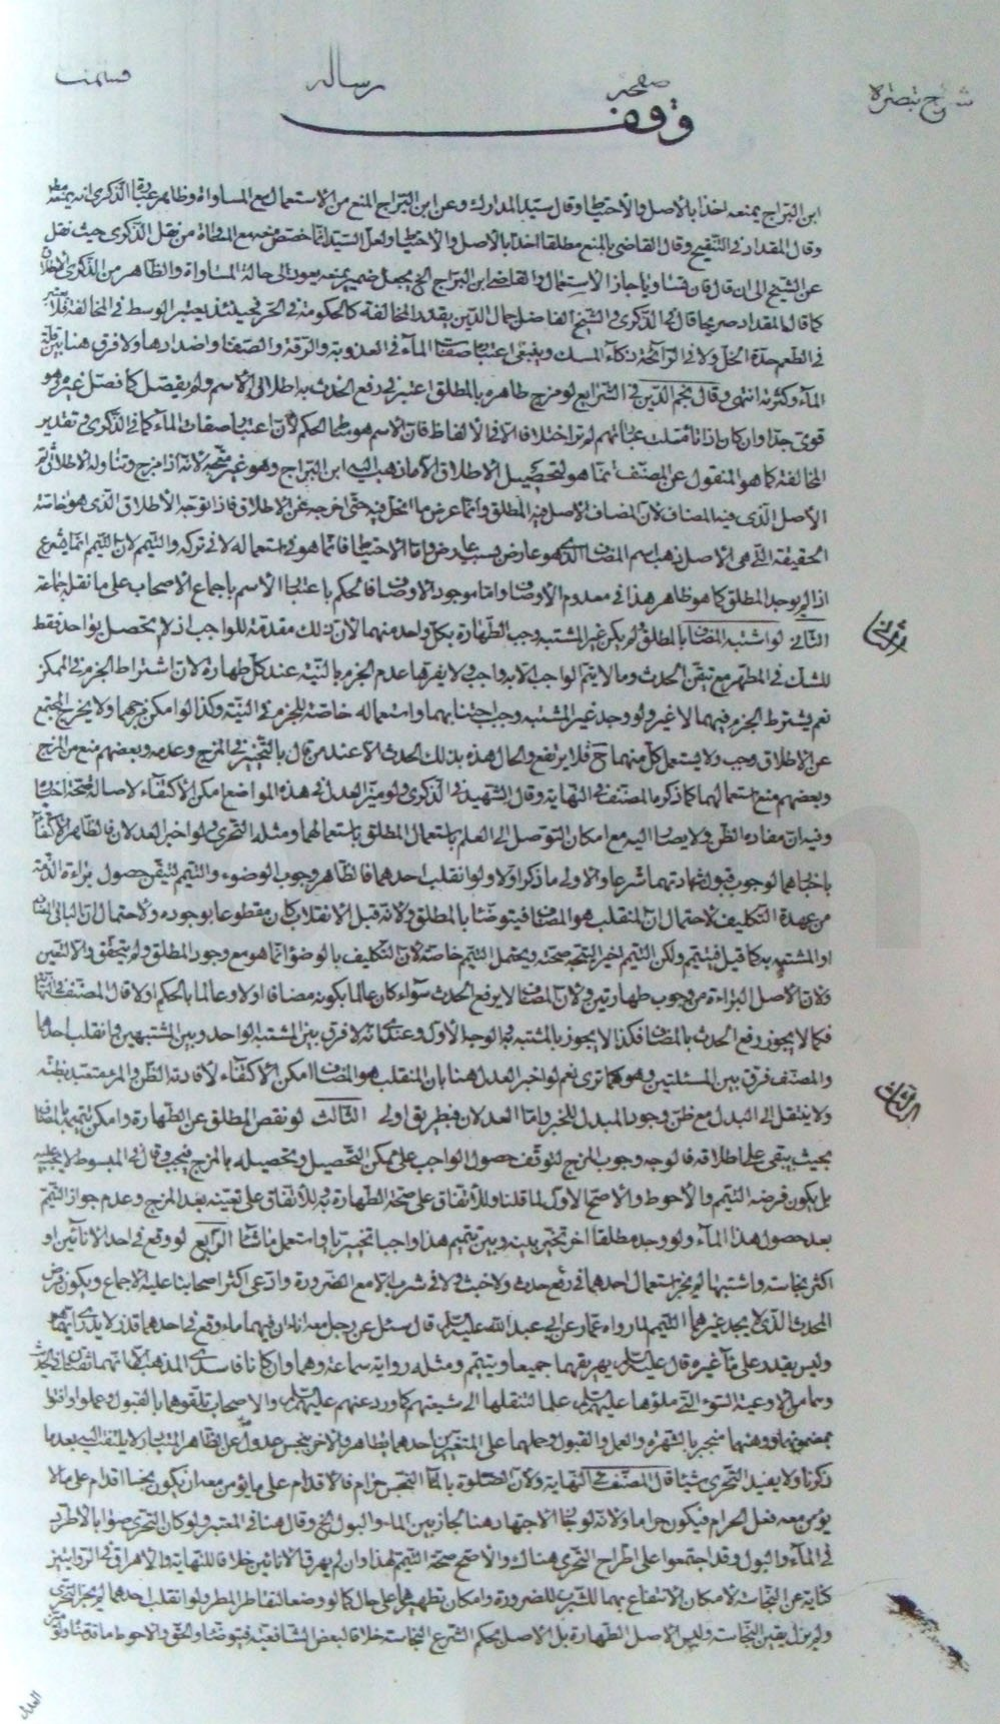 شرح تبصرة
صفحة
رسالة
وقف
ابن البراج بمنعه اخذا بالاصل والاحتياط وقال سيد المدارك وعن ابن البراج المنع من الاستعمال مع المساواة وظاهر عبارة الذكرى انه يمنعه
وقال المقداد في التنقيح وقال القاضي بالمنع مطلقا اخذا بالاصل والاحتياط ولعل السيد انما خصص منعه مع المساواة من نقل الذكرى حيث نقل
عن الشيخ الى ان قال فان تساويا جاز الاستعمال والقاضي ابن البراج الخ بجعل ضمير يمنعه يعود الى حالة المساواة والظاهر من الذكرى الاطلاق
كما قاله المقداد صريحا قال في الذكرى والشيخ الفاضل جمال الدين يقدر المخالفة كالحكومة في الحر فحينئذ يعتبر الوسط في المخالفة فلا يعتبر
في الطعم حدة الخل ولا في الرائحة ذكاء المسك وينبغي اعتبار صفات الماء في العذوبة والرقة والصفا واضدادها ولا فرق هنا بين قلة
الماء وكثرته انتهى وقال نجم الدين في الشرايع لو مزج طاهره بالمطلق اعتبر في رفع الحدث به اطلاق الاسم ولم يفصل كما فصل غيره وهو
قوي جدا وان كان اذا تأملت عباراتهم لم تر اختلافا الا في الالفاظ فان الاسم هو مناط الحكم لان اعتبار صفات الماء كما في الذكرى وتقدير
المخالفة كما هو المنقول عن المصنف انما هو لتحصيل الاطلاق الا ما ذهب اليه ابن البراج وهو غير متجه لانه اذا مزج وتناوله الاطلاق
الاصل الذي فيه المضاف لان المضاف الاصل فيه المطلق وانما عرض ما انحل فيه حتى اخرجه عن الاطلاق فاذا توجه الاطلاق الذي هو خاصة
الحقيقة التي هي الاصل ذهب اسم المضاف الذي هو عارض بسبب عارض واما الاحتياط فانما هو في استعماله لا في تركه والتيمم لان التيمم انما يشرع
اذا لم يوجد المطلق كما هو ظاهر هذا في معدوم الاوصاف واما موجود الاوصاف فالحكم باعتبار الاسم باجماع الاصحاب على ما نقله جماعة
الثاني لو اشتبه المضاف بالمطلق لم يكن غير المشتبه وجب الطهارة بكل واحد منهما لان ذلك مقدمة للواجب اذ لا يحصل بواحد فقط
للشك في المطهر مع تيقن الحدث وما لا يتم الواجب الا به واجب ولا يضر هنا عدم الجزم بالنية عند كل طهارة لان اشتراط الجزم في الممكن
نعم يشترط الجزم فيهما لا غير ولو وجد غير المشتبه وجب اجتنابهما واستعماله خاصة للجزم في النية وكذا لو امكن مزجهما ولا يخرج المجتمع
عن الاطلاق وجب ولا يستعمل كل منهما ح فلا يرتفع والحال هذه بذلك الحدث الا عند من قال بالتخيير في المزج وعدمه وبعضهم منع من المزج
وبعضهم منع استعمالهما كما ذكره المصنف في النهاية وقال الشهيد في الذكرى ولو ميز العدل في هذه المواضع امكن الاكتفاء لاصالة صحة اخباره
وفيه ان مفاده الظن ولا يصار اليه مع امكان التوصل الى العلم باستعمال المطلق باستعمالهما ومثله التحري ولو اخبر العدلان فالظاهر الاكتفاء
باخبارهما لوجوب قبول شهادتهما شرعا والاولى ما ذكر اولا ولو انقلب احدهما فالظاهر وجوب الوضوء والتيمم لتيقن حصول براءة الذمة
من عهدة التكليف لاحتمال ان المنقلب هو المضاف فيتوضأ بالمطلق ولانه قبل الانقلاب كان مقطوعا بوجوده ولاحتمال ان الباقي المضاف
او المشتبه به كما قيل فيتيمم ولكن التيمم اخيرا ليتجه صحته ويحتمل التيمم خاصة لان التكليف بالوضوء انما هو مع وجود المطلق ولم يتحقق والا لتعين
ولان الاصل البراءة من وجوب طهارتين ولان المضاف لا يرفع الحدث سواء كان عالما بكونه مضافا اولا وعالما بالحكم اولا قال المصنف في النهاية
فكما لا يجوز رفع الحدث بالمضاف فكذا لا يجوز بالمشتبه به الوجه الاول وعندي انه لا فرق بين المشتبه الواحد وبين المشتبهين وانقلب احدهما
والمصنف فرق بين المسئلتين وهو كما ترى نعم لو اخبر العدل هنا بان المنقلب هو المضاف امكن الاكتفاء لافادته الظن والمرء متعبد بظنه
ولا ينتقل الى البدل مع ظن وجود المبدل للخبر واما العدلان فبطريق اولى الثالث لو نقص المطلق عن الطهارة وامكن تتميمه بالمضاف
بحيث يبقى على اطلاقه فالوجه وجوب المزج لتوقف حصول الواجب على ممكن التحصيل وتحصيله بالمزج فيجب وقال في المبسوط لا يجب عليه
بل يكون فرضه التيمم والاحوط والاصح الاول لما قلناه وللاتفاق على صحة الطهارة به وللاتفاق على تعينه بعد المزج وعدم جواز التيمم
بعد حصول هذا الماء ولو وجد مطلقا اخر تخير بينه وبين تتميم هذا واجبا تخييريا واستعمل ما شاء الرابع لو وقع في احد الانائين او
اكثر نجاسة واشتبها لم يجز استعمال احدهما في رفع حدث ولا خبث ولا في شرب الا مع الضرورة وادعى اكثر اصحابنا عليه الاجماع ويكون فرض
المحدث الذي لا يجد غيرهما التيمم لما رواه عمار عن ابي عبد الله عليه السلم قال سئل عن رجل معه اناءان فيهما ماء وقع في احدهما قذر لا يدري ايهما هو
وليس يقدر على ماء غيره قال عليه السلم يهريقهما جميعا ويتيمم ومثله رواية سماعة وهما وان كانا فاسدي المذهب الا انهما ثقتان في الحديث
وهما من الاوعية السوء التي ملؤها عليهم السلم علما لتنقلها الى شيعتهم كما ورد عنهم عليهم السلم والاصحاب تلقوهما بالقبول وعملوا وافتوا
بمضمونهما ووهنهما منجبر بالشهرة والعمل والقبول وحملهما على المتغيرين احدهما بطاهر والاخر بنجس عدول عن الظاهر المتبادر لا يلتفت اليه بعد ما
ذكرنا ولا يفيد التحري شيئا قال المصنف في النهاية ولان الصلوة بالماء النجس حرام فالاقدام على ما يؤمن معه ان يكون نجسا اقدام على ما لا
يؤمن معه فعل الحرام فيكون حراما ولانه لو جاز الاجتهاد هنا لجاز بين الماء والبول الخ وقال هنا في المعتبر ولو كان التحري صوابا لاطرد
في الماء والبول وقد اجتمعوا على اطراح التحري هناك والاصح صحة التيمم لهذا وان لم يهرق الانائين خلافا للنهاية والاهراق في الروايتين
كناية عن النجاسة لامكان الانتفاع بهما للشرب للضرورة وامكان تطهيرهما على حال كما لو وضعا لتقاطر المطر ولو انقلب احدهما لم يجز التحري
ولم يزل يقين النجاسة وليس الاصل الطهارة بل الاصل بحكم الشرع النجاسة خلافا لبعض الشافعية فيتوضأ والحق والاحوط ما قلناه ولو